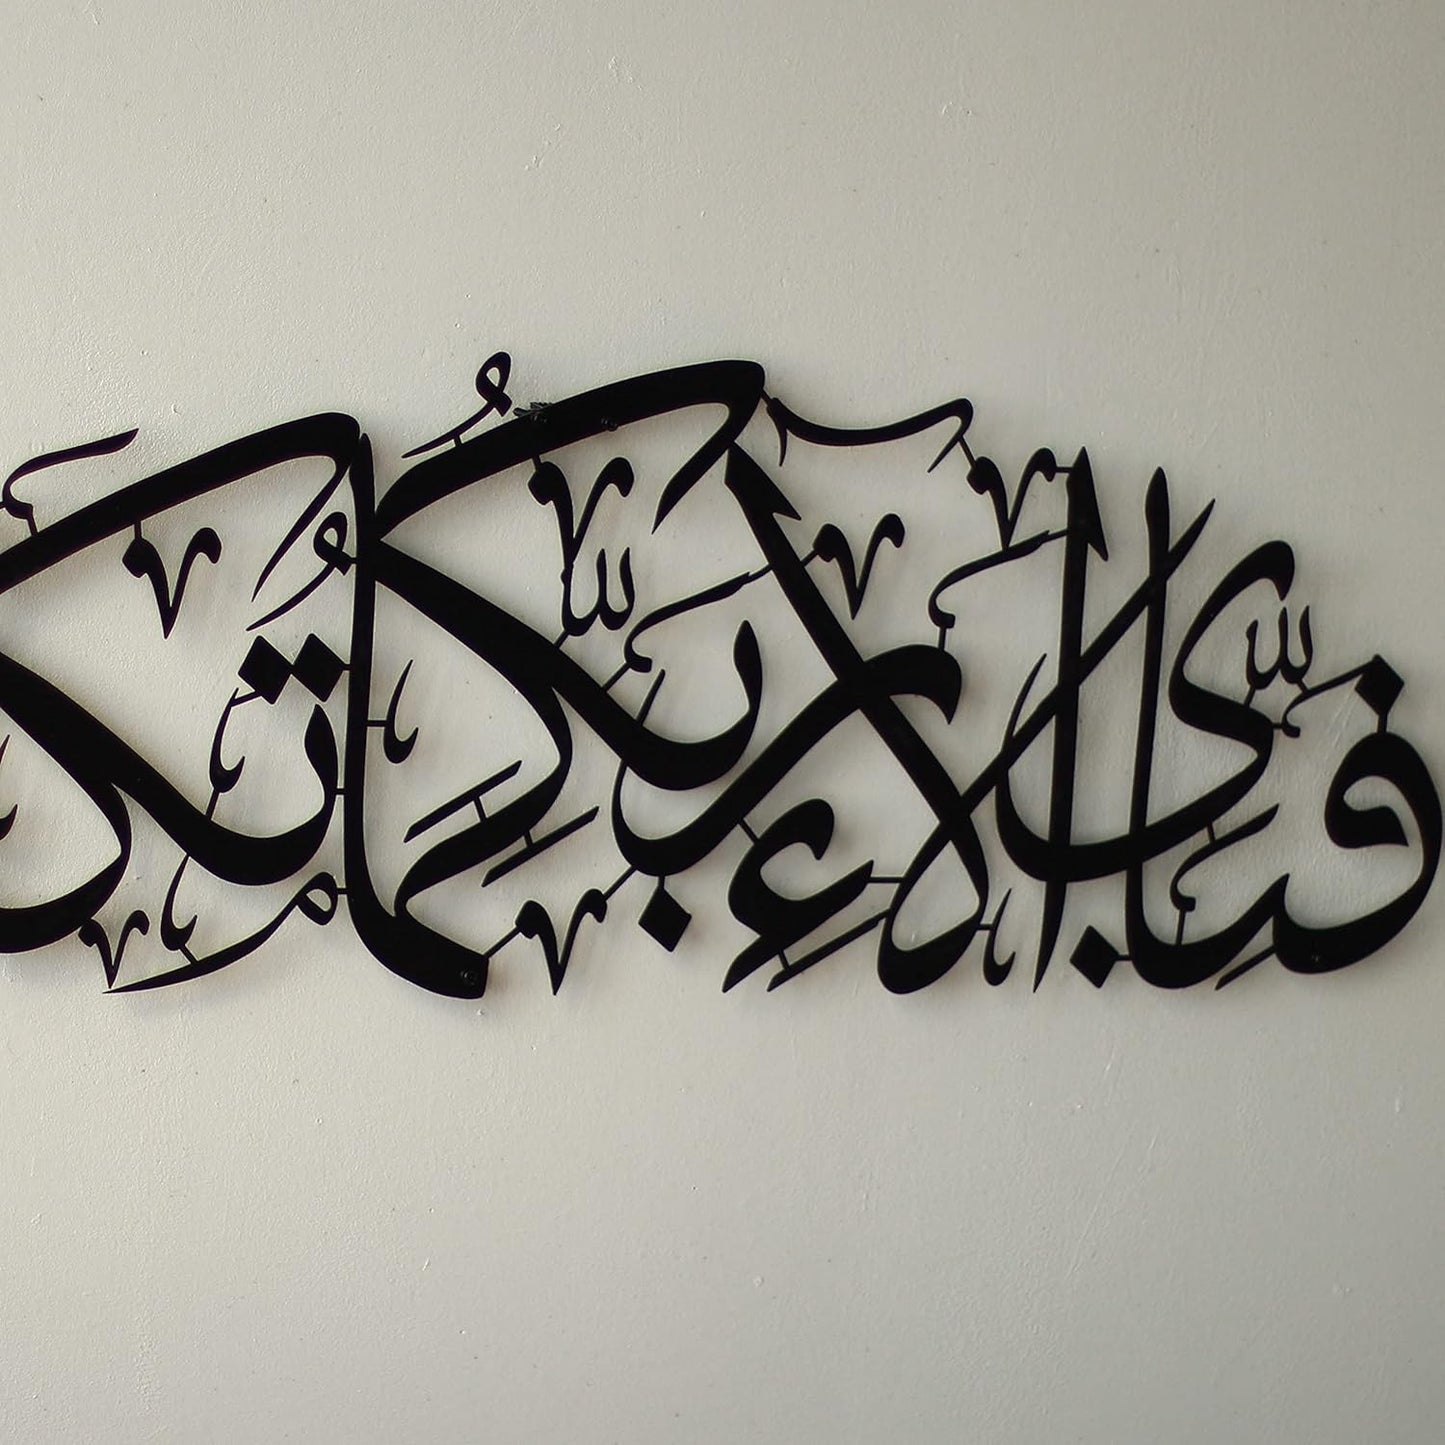 فَبِأَيِّ آلَاءِ رَبِّكُمَا تُكَ